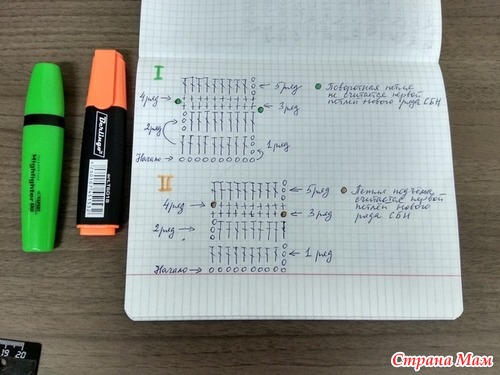 I
5 ряд
Поворотная петля
не считается первой
петлей нового ряда СБН
4 ряд
3 ряд
2 ряд
1 ряд
Начало
II
5 ряд
Петля подъема
считается первой
петлей нового
ряда СБН
4 ряд
3 ряд
2 ряд
1 ряд
Начало
Highlighter
Berlingo
19 20
Страна Мам